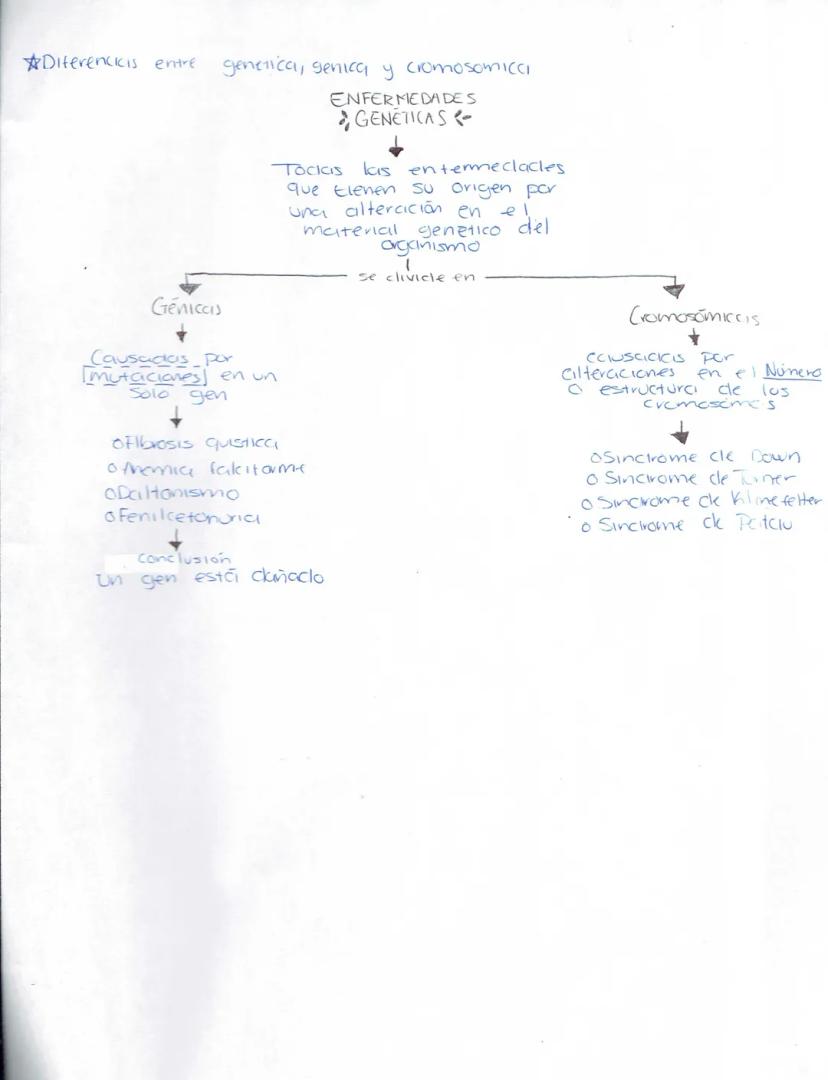 ☆Diferencias entre genetica, genica y cromosomica
ENFERMEDADES
GENÉTICAS
Todas las enfermedades
que tienen su origen por
una alteración en el
material genetico del
organismo
se divide en
Génicas
Causadas por
mutaciones en un
solo gen
o Fibrosis quistica
o Anemia falciforme
o Daltonismo
o Fenilcetonuria
Conclusión
Un gen está dañado
Cromosómicas
causadas por
alteraciones en el Número
o estructura de los
cromosomas
o Sindrome de Down
o Sindrome de Turner
o Sindrome de Klinefelter
o Sindrome de Patau